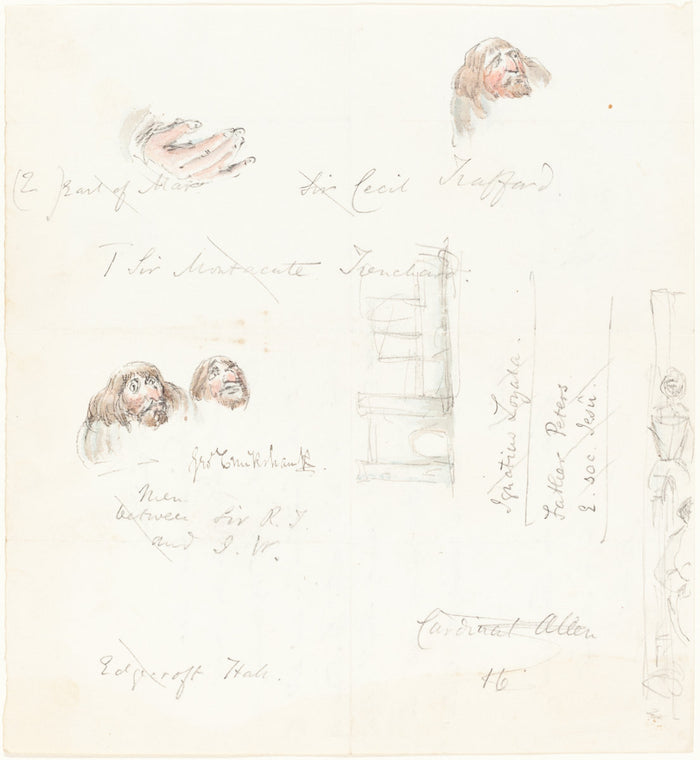 Earl of Mar
Sir Cecil Trafford.
T Sir Montacute Trenchard.
Geo Cruikshank.
Men
between Sir R. T.
and J. W.
Ignatius Loyala.
Father Peters
Soc. Jesu.
Cardinal Allen
16
Edgcroft Hall.